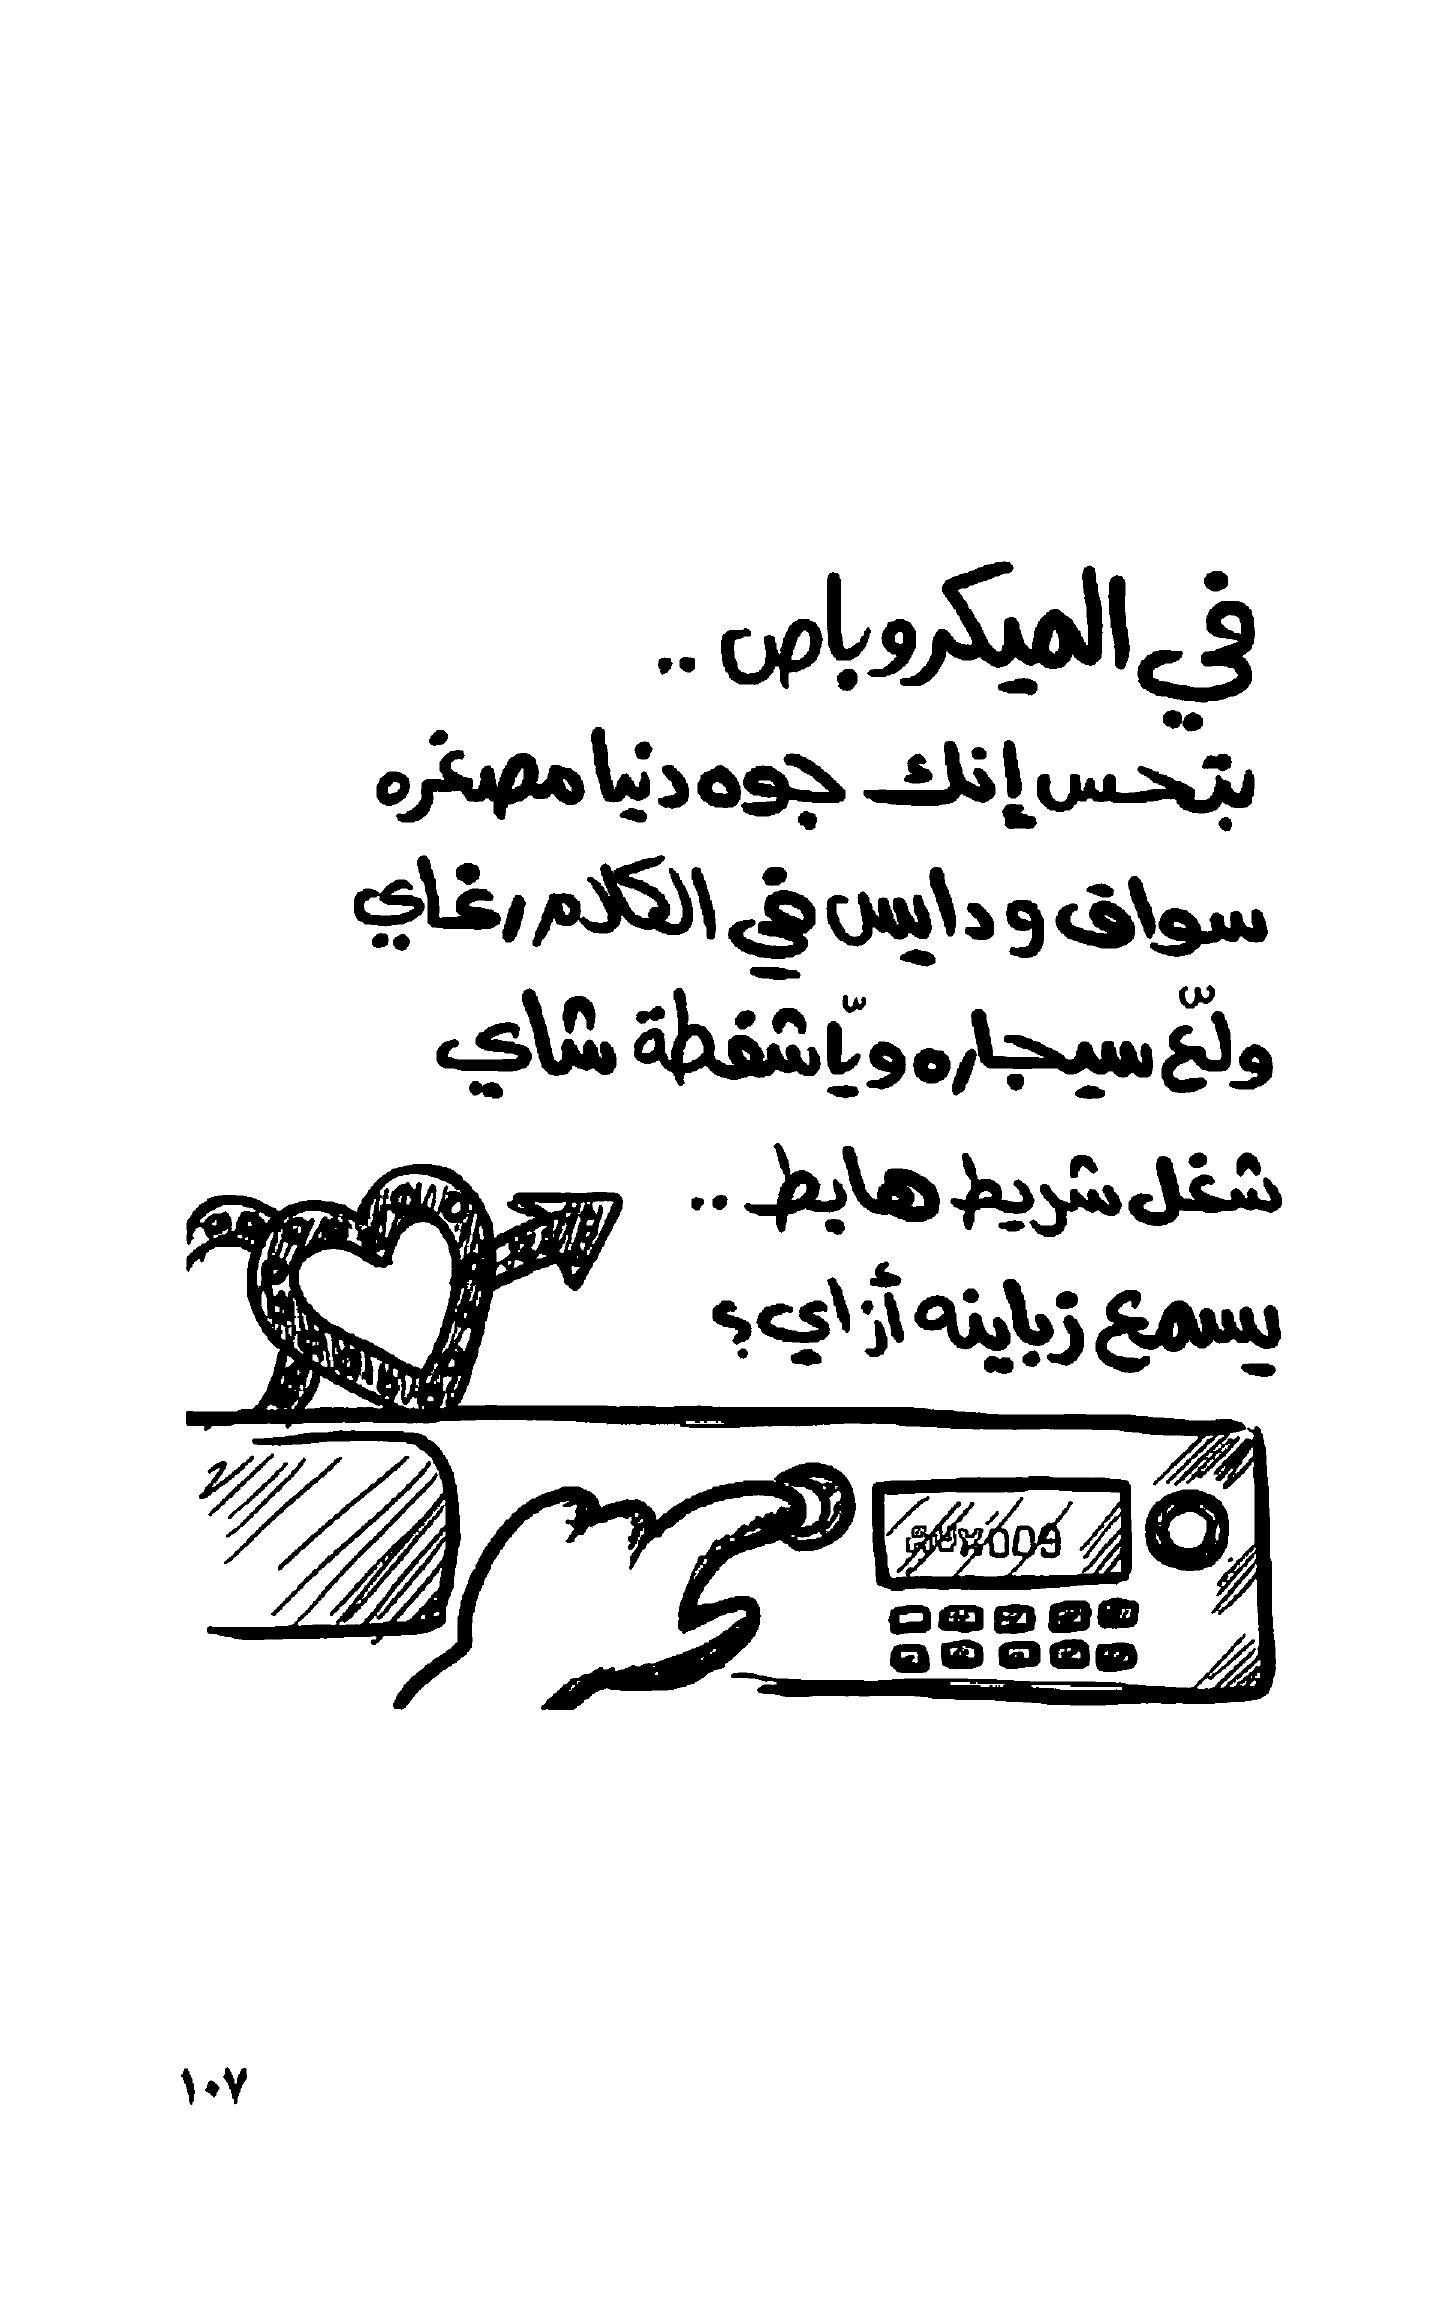 في الميكروباص ..
بتحس إنك جوه دنيا مصغره
سواق ودايس في الكلام رغاي
ولّع سيجاره ويّا شفطة شاي
شغل شريط هابط ..
يسمع زباينه أزاي؟
١٠٧